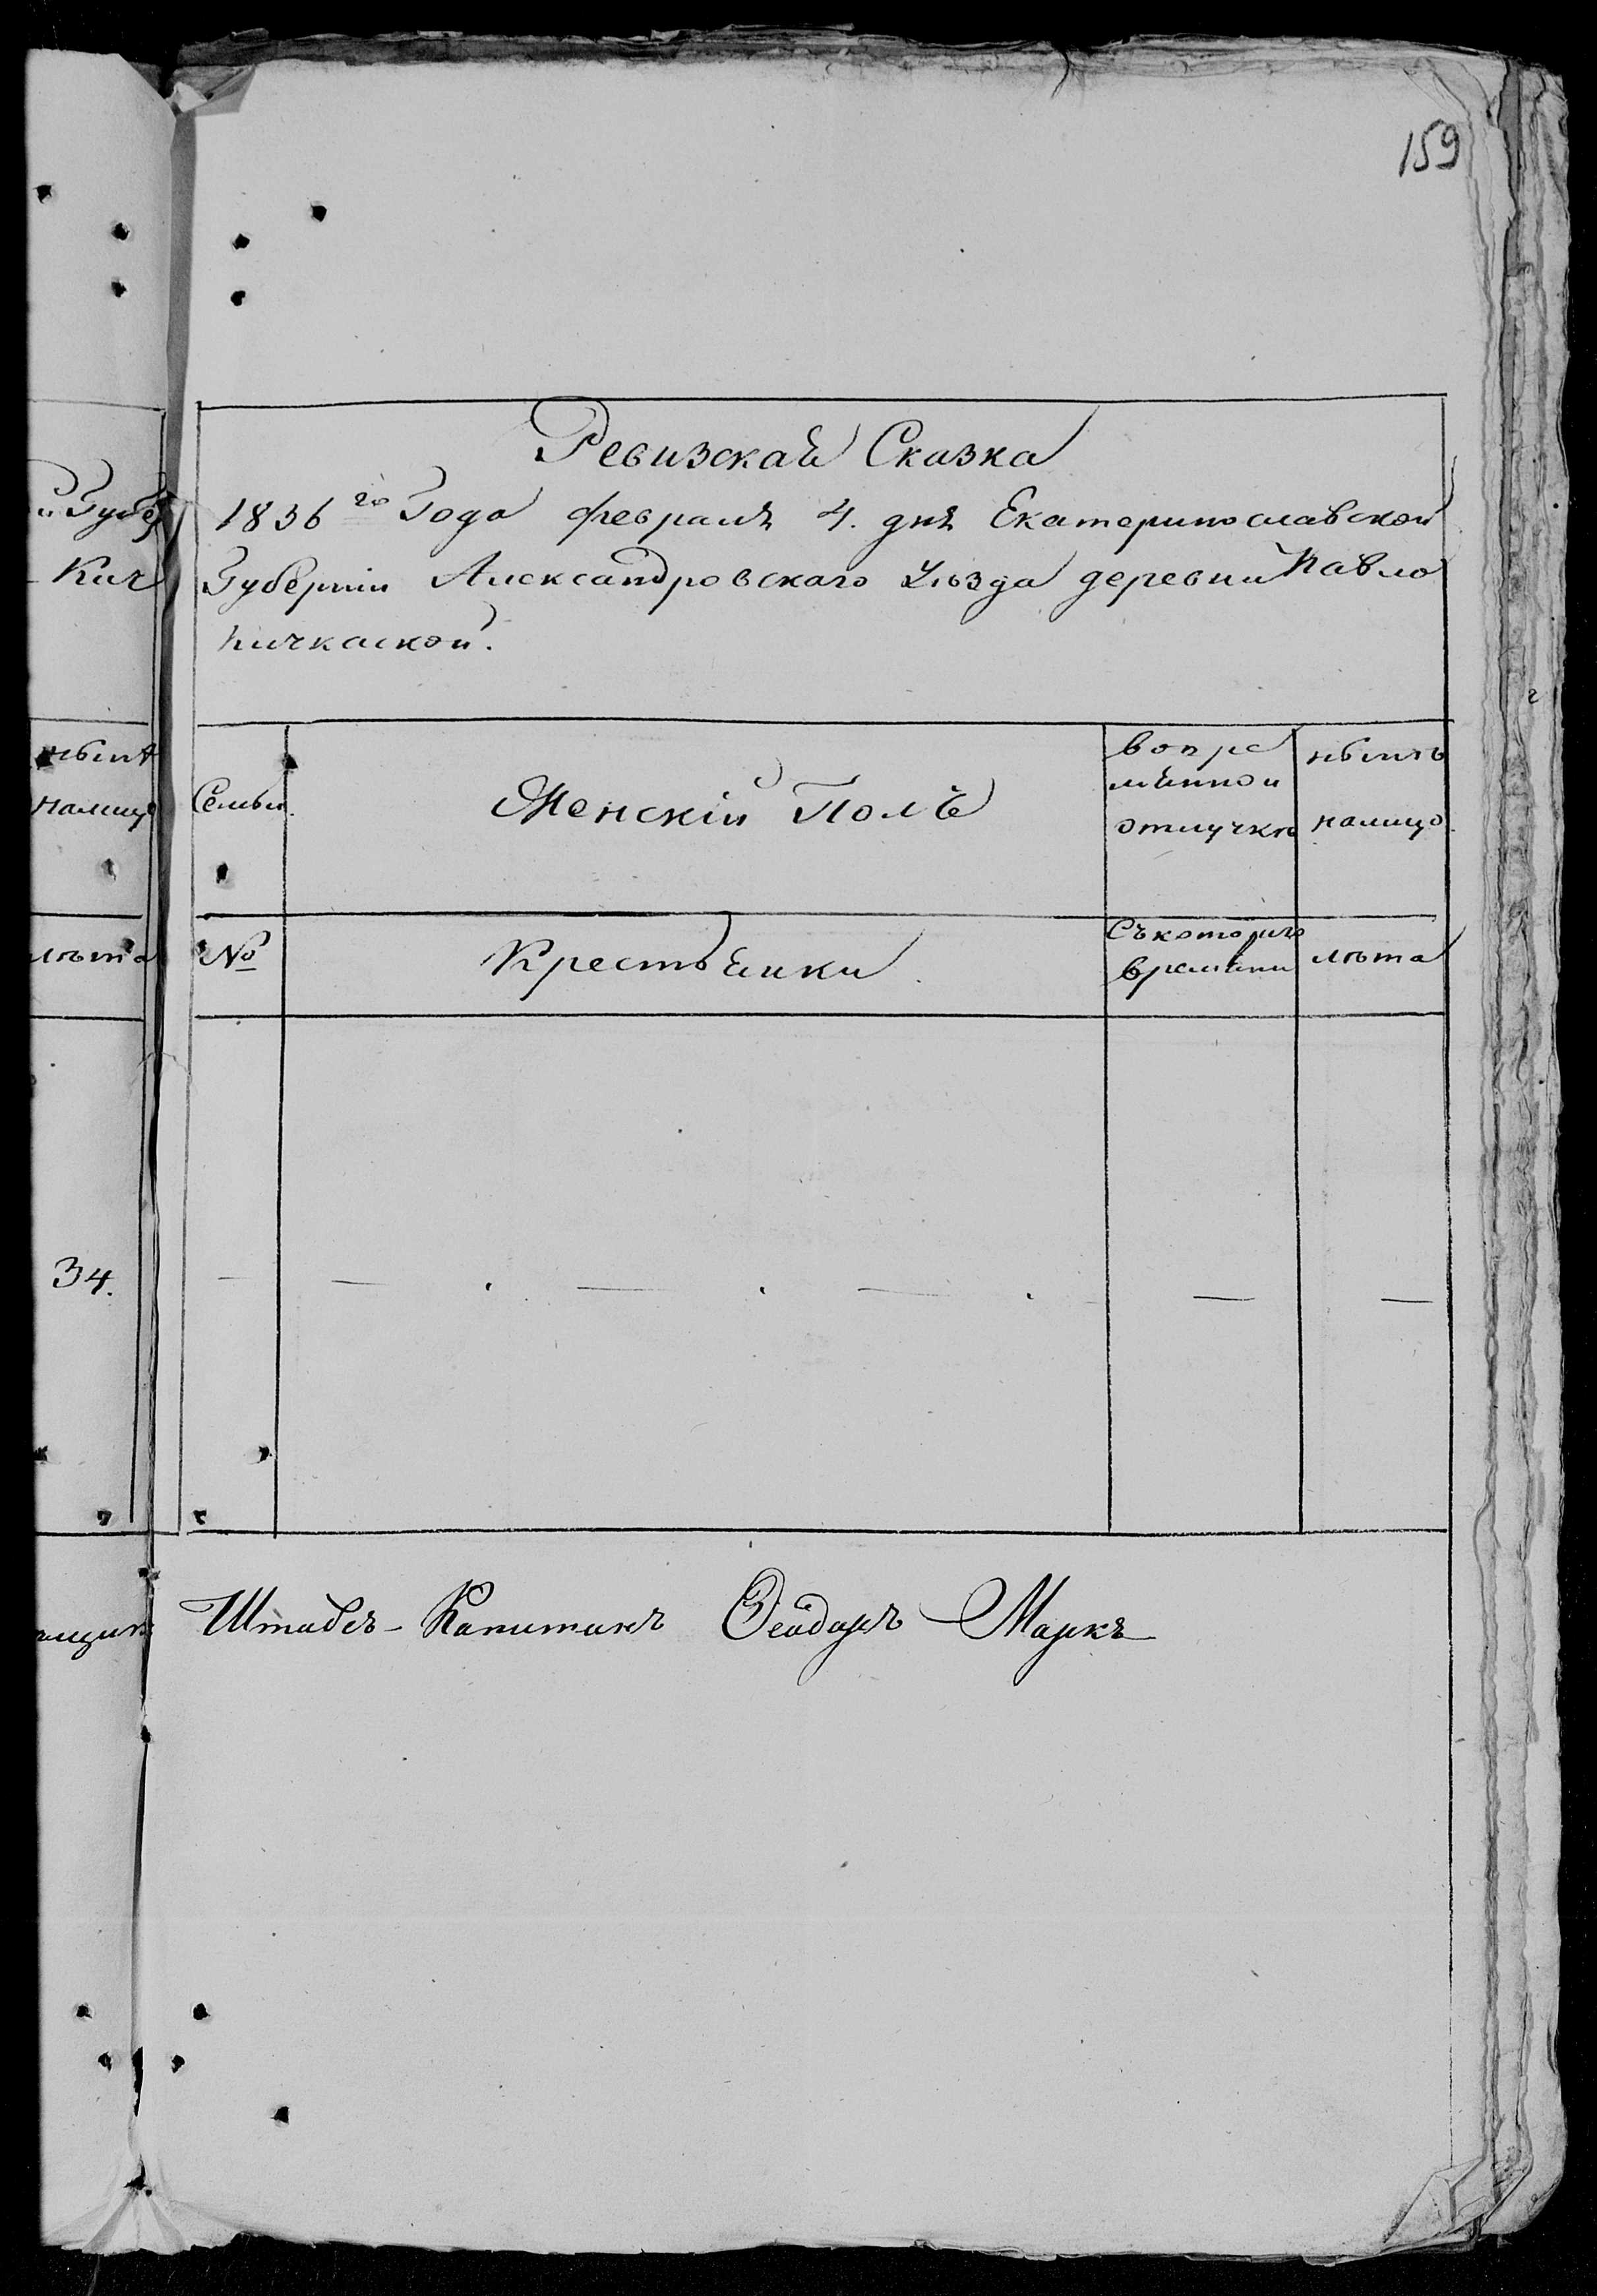 159
Ревизская Сказка
1836 го Года февраля 4. дня Екатеринославской
Губерніи Александровскаго Уѣзда деревни Павло
Кичкаской.
Семьи.
Женскій Полъ
во вре
мянной
отлучкѣ
нынѣ
налицо.
№
Крестьянки.
Съ котораго
времяни
лѣта
Штабсъ-Капитанъ Феодоръ Маркъ
Губер
Кич
нынѣ
налицо
лѣта
34.